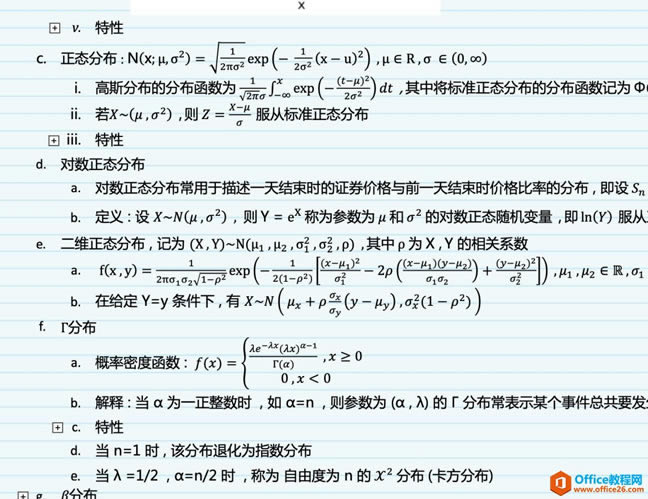 x
v. 特性
c. 正态分布 : N(x; μ, σ²) = √(1/(2πσ²)) exp(− 1/(2σ²) (x − u)²) , μ ∈ R , σ ∈ (0, ∞)
i. 高斯分布的分布函数为 1/(√(2π)σ) ∫_{−∞}^{x} exp(−(t−μ)²/(2σ²)) dt ,其中将标准正态分布的分布函数记为 Φ(
ii. 若X~(μ , σ²) , 则 Z = (X−μ)/σ 服从标准正态分布
iii. 特性
d. 对数正态分布
a. 对数正态分布常用于描述一天结束时的证券价格与前一天结束时价格比率的分布 , 即设 Sₙ
b. 定义 : 设 X~N(μ , σ²) , 则 Y = eˣ 称为参数为 μ 和 σ² 的对数正态随机变量 , 即 ln(Y) 服从
e. 二维正态分布 , 记为 (X , Y)~N(μ₁ , μ₂ , σ₁² , σ₂² , ρ) , 其中 ρ 为 X , Y 的相关系数
a. f(x , y) = 1/(2πσ₁σ₂√(1−ρ²)) exp(− 1/(2(1−ρ²)) [(x−μ₁)²/σ₁² − 2ρ((x−μ₁)(y−μ₂)/(σ₁σ₂)) + (y−μ₂)²/σ₂²]) , μ₁ , μ₂ ∈ ℝ , σ₁
b. 在给定 Y=y 条件下 , 有 X~N(μₓ + ρ σₓ/σᵧ (y − μᵧ) , σₓ²(1 − ρ²))
f. Γ分布
a. 概率密度函数 : f(x) = { λe^{−λx}(λx)^{α−1}/Γ(α) , x ≥ 0
0 , x < 0
b. 解释 : 当 α 为一正整数时 , 如 α=n , 则参数为 (α , λ) 的 Γ 分布常表示某个事件总共要发
c. 特性
d. 当 n=1 时 , 该分布退化为指数分布
e. 当 λ =1/2 , α=n/2 时 , 称为 自由度为 n 的 𝒳² 分布 (卡方分布)
g. β分布
Office教程网
www.office26.com